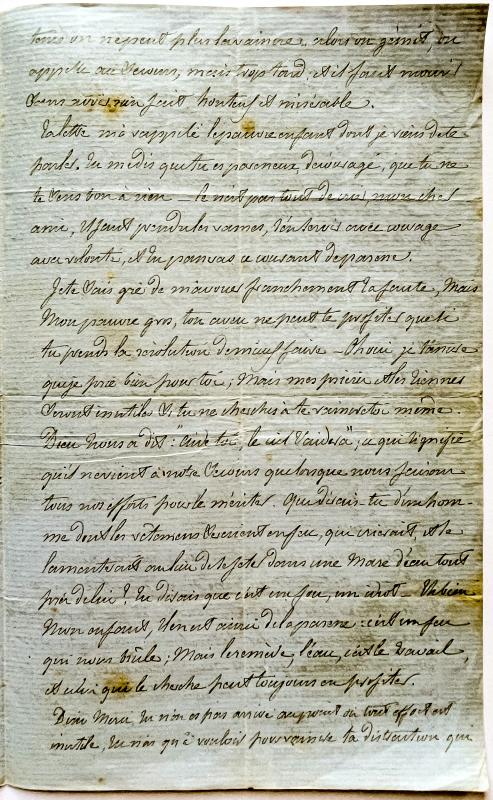 tems on ne peut plus la vaincre. alors on gémit, on
appelle au secours, mais trop tard, et il faut mourir
sans avoir rien fait honteux et misérable.
Ta lettre m'a rappelé le pauvre enfant dont je viens de te
parler. Tu me dis que tu es paresseux, de courage, que tu ne
te sens bon à rien — ce n'est pas tout de cris, mon cher
ami, il faut prendre les rames, t'en servir avec courage
avec volonté, et tu ce courant de paresse.
Je te sais gré de m'avouer franchement ta faute, Mais
Mon pauvre gros, ton aveu ne peut te profiter que si
tu prends la résolution de mieux faire — Oh oui je t'assure
que je prie bien pour toi; Mais mes prières et les tiennes
seront inutiles si tu ne cherches à te vaincre toi même.
Dieu nous a dit: "aide toi, le ciel t'aidera"; ce qui signifie
qu'il ne vient à notre secours que lorsque nous faisons
tous nos efforts pour le mériter. Que dirais-tu d'un hom-
me dont les vêtemens seraient en feu, qui crierait, et se
lamenterait au lieu de se jeter dans une Mare d'eau tout
près de lui? Tu dirais que c'est un fou, un idiot — Eh bien
Mon enfant, il en est ainsi de la paresse: c'est un feu
qui nous brûle; Mais le remède, l'eau, c'est le travail,
et celui qui le cherche peut toujours en profiter.
Dieu Merci, tu n'en es pas arrivé au point où tout effort est
inutile, tu n'as qu'à vouloir pour vaincre ta distraction qui